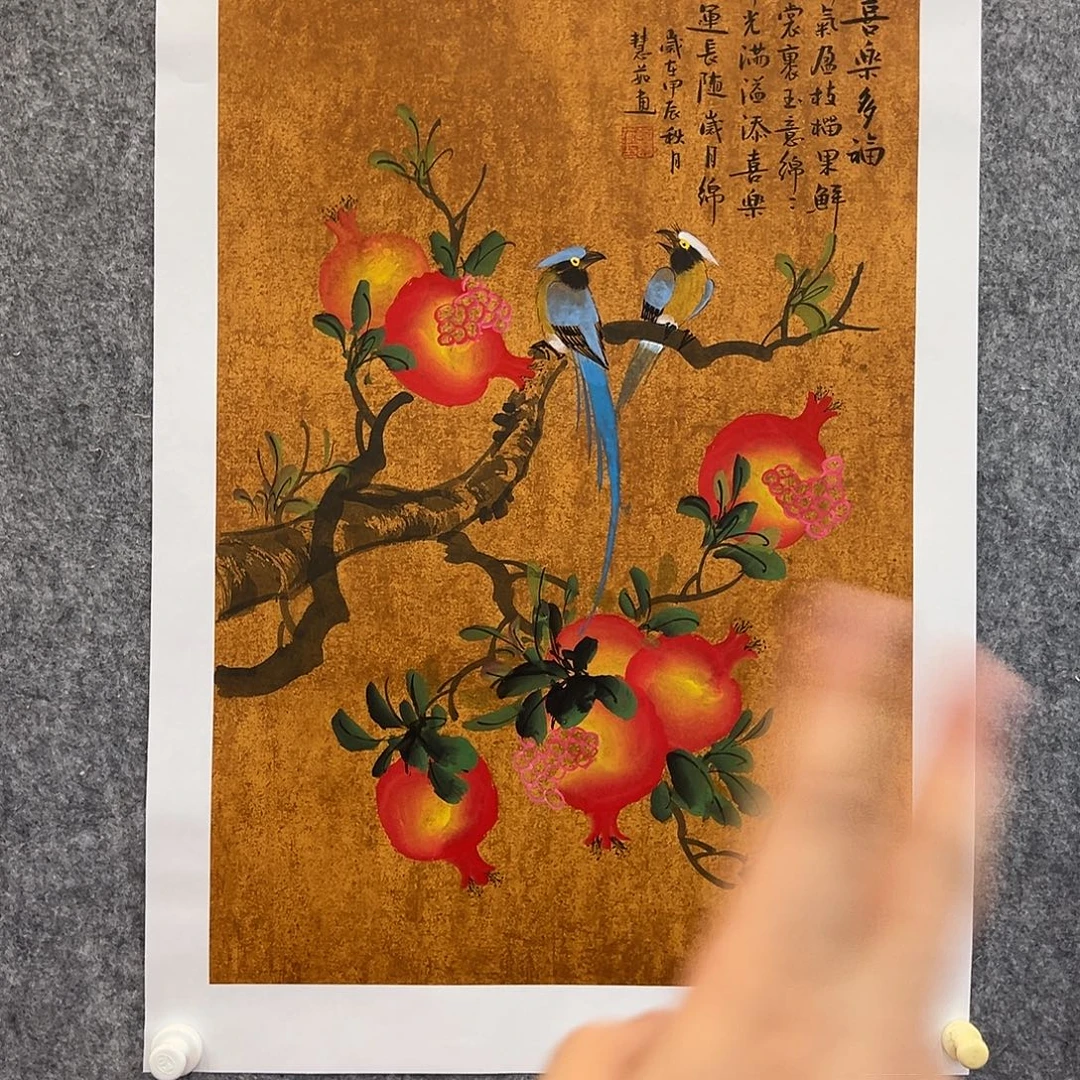 喜樂多福
氣盈枝榴果鮮
裳裹玉意綿〻
光滿溢添喜樂
運長隨歲月綿
歲在甲辰秋月
慧茹畫